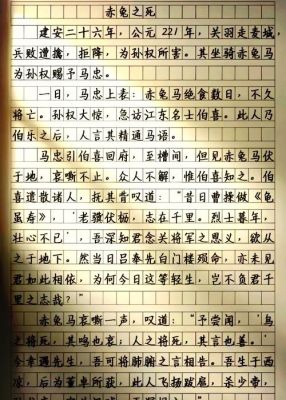 赤兔之死
建安二十六年，公元221年，关羽走麦城，
兵败遭擒，拒降，为孙权所害。其坐骑赤兔马
为孙权赐予马忠。
一日，马忠上表：赤兔马绝食数日，不久
将亡。孙权大惊，急访江东名士伯喜。此人乃
伯乐之后，人言其精通马语。
马忠引伯喜回府，至槽间，但见赤兔马伏
于地，哀嘶不止。众人不解，惟伯喜知之。伯
喜遣散诸人，抚其背叹道：“昔日曹操做《龟
虽寿》，‘老骥伏枥，志在千里。烈士暮年，
壮心不已’，吾深知君念关将军之恩义，欲从
之于地下。然当日吕奉先白门楼殒命，亦未见
君如此相依，为何今日这等轻生，岂不负君千
里之志哉？”
赤兔马哀嘶一声，叹道：“予尝闻，‘鸟
之将死，其鸣也哀；人之将死，其言也善。’
今幸遇先生，吾可将肺腑之言相告。吾生于西
凉，后为董卓所获，此人飞扬跋扈，杀少帝，